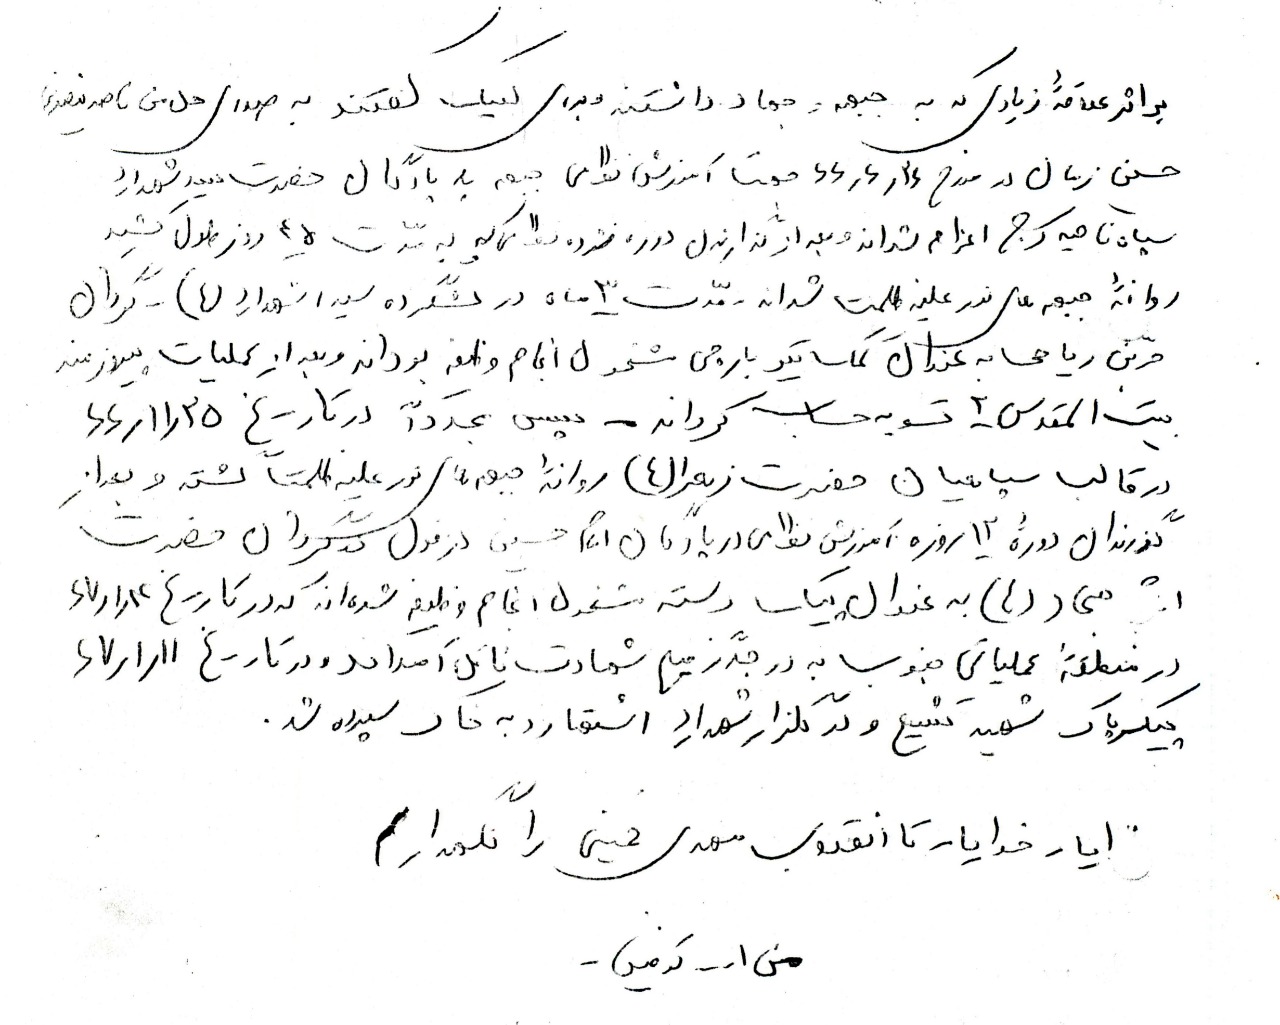 بر اثر علاقهٔ زیادی که به جبهه و جهاد داشتند و برای لبیک گفتند به صدای هل من ناصر ینصرنی
حسین زمان در مورخ ۶۶٫۶٫۲۶ جهت آموزش نظامی جبهه به پادگان حضرت سید الشهداء
سپاه ناحیه کرج اعزام شدند و بعد از گذارندن دوره فشرده نظامی که به مدّت ۴۵ روز طول کشید
روانهٔ جبهه های نور علیه ظلمت شدند مدّت ۳ ماه در لشگر ده سید الشهداء (ع) گردان
حرّبن ریاحی به عنوان کمک تیربارچی مشغول انجام وظیفه بودند و بعد از عملیات پیروزمند
بیت المقدس ۲ تسویه حساب کردند - سپس مجدداً در تاریخ ۶۶٫۱۱٫۲۵
در قالب سپاهیان حضرت زهرا (ع) روانهٔ جبهه های نور علیه ظلمت گشته و بعد از
گذرندن دورهٔ ۱۲ روزه آموزش نظامی در پادگان امام حسین دزفول گردان حضرت
(ع) به عنوان پیک دسته مشغول انجام وظیفه شده اند که در تاریخ
در منطقهٔ عملیاتی جنوب به درجهٔ رفیع شهادت نائل آمدند و در تاریخ ۶۷٫۱٫۱۱
پیکر پاک شهید تشییع و در گلزار شهداء اشتهارد به خاک سپرده شد.
خدایا خدایا تا انقلاب مهدی خمینی را نگهدار